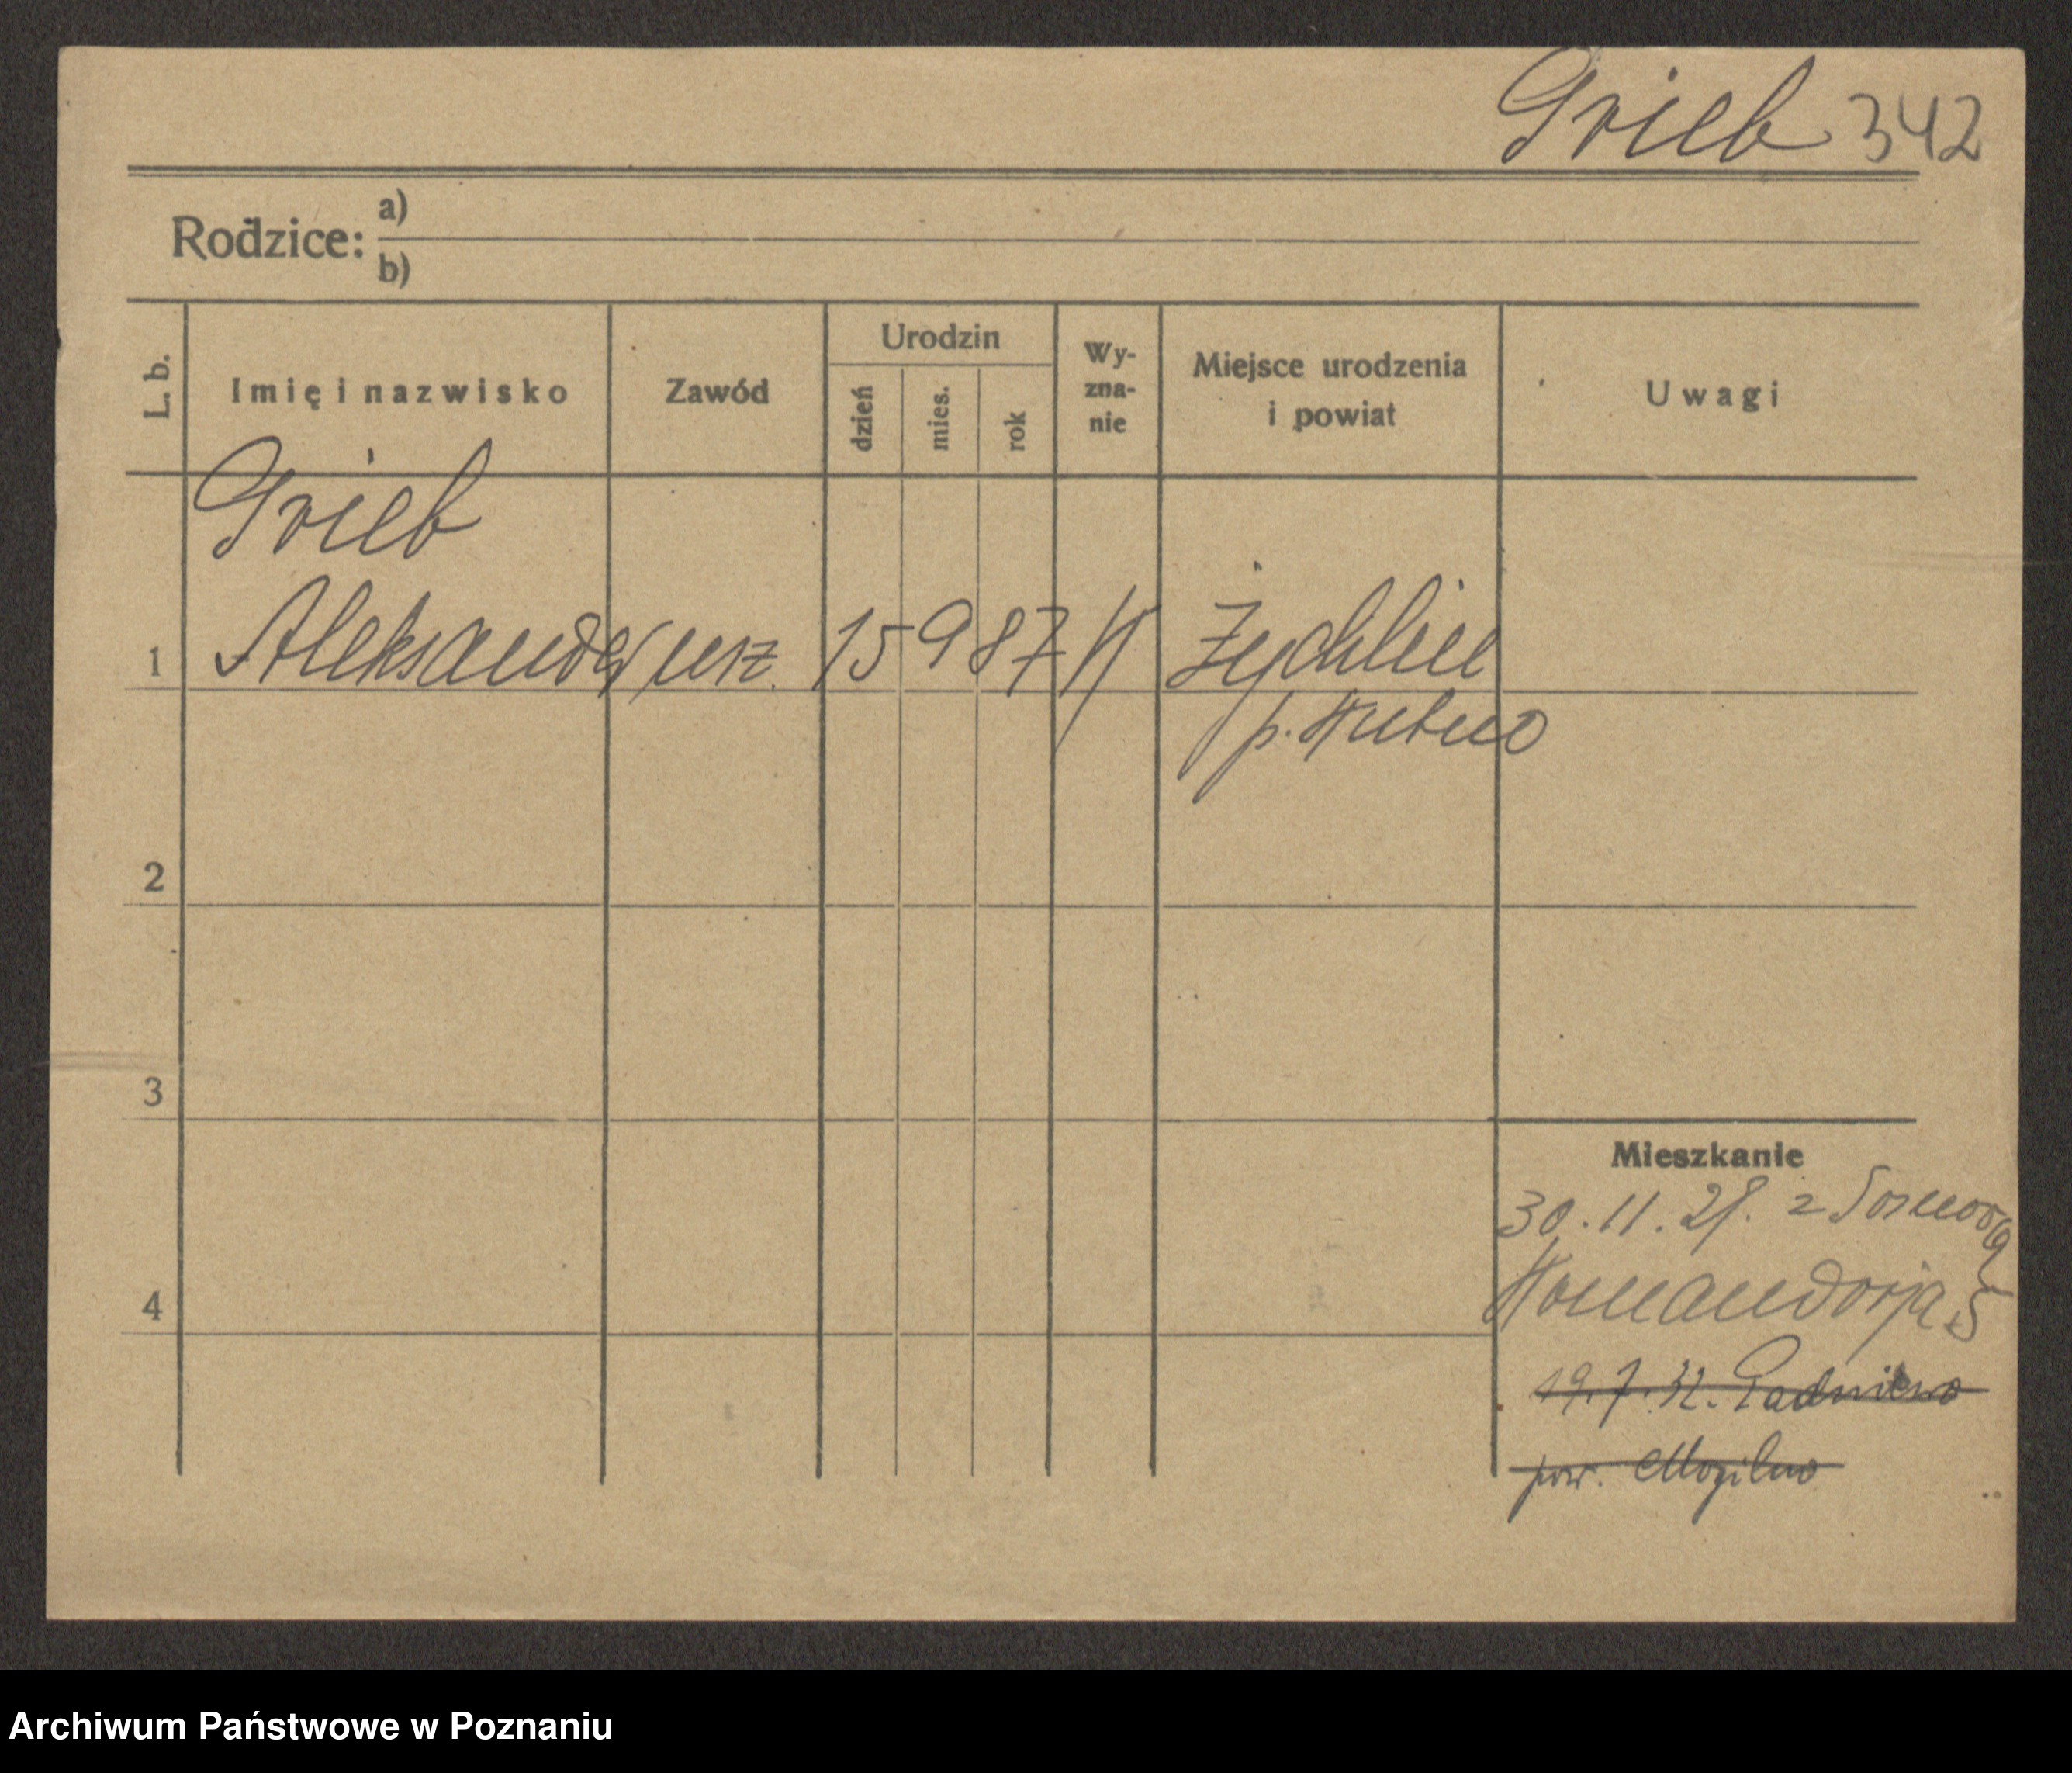 Grieb 342
Rodzice: a)
b)
L. b. Imię i nazwisko Zawód Urodzin dzień mies. rok Wy-zna-nie Miejsce urodzenia i powiat Uwagi
Grieb
1 Aleksander urz. 15 9 87 K Żychlin
p. Kutno
2
3
Mieszkanie
30.11.28. z
4 Komandorja 5
19.7.32. Padniewo
pow. Mogilno
Archiwum Państwowe w Poznaniu